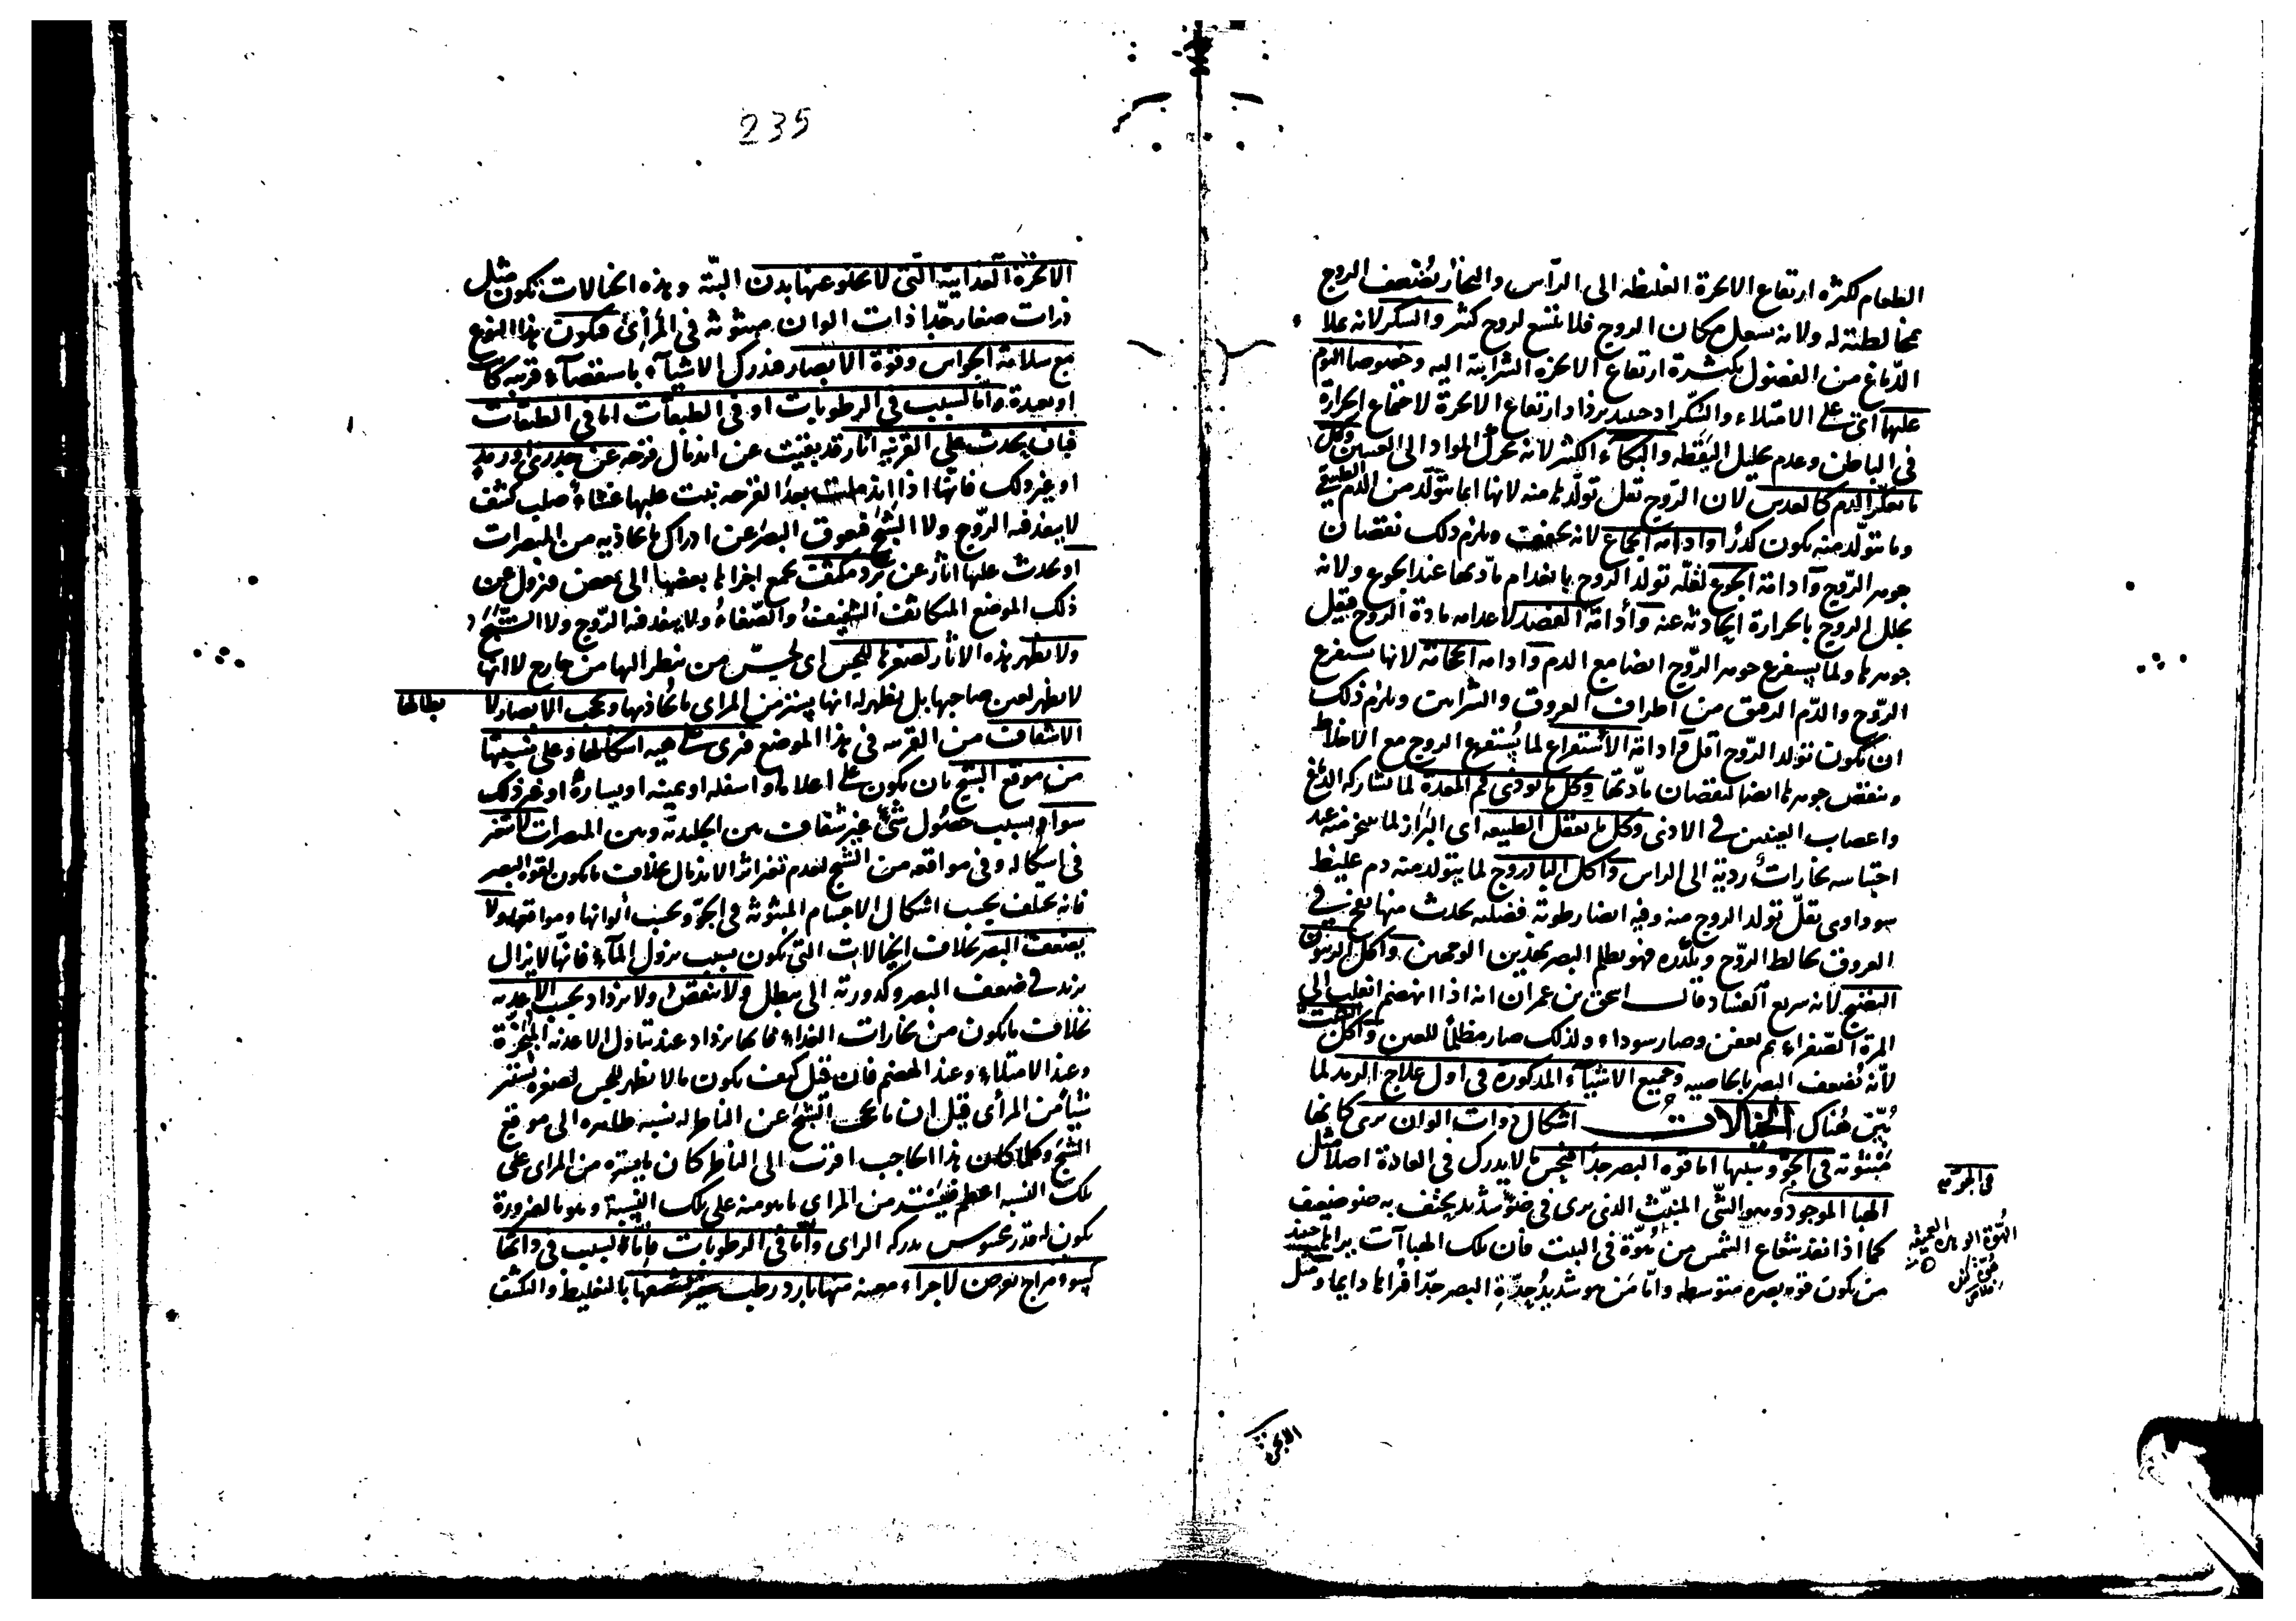 الطعام لكثرة ارتفاع الابخرة الغليظه الى الرّاس والبخار يُضعف الروح
بمخالطته له ولانه يشغل مكان الروح فلا يتسع لروح كثير والسكر لانه يملا
الدّماغ من الفضول بكثرة ارتفاع الابخره الشرابية اليه وخصوصا النوم
عليها اى على الامتلاء والسّكر اذ حينئذ يزداد ارتفاع الابخرة لاجتماع الحرارة
فى الباطن وعدم تحليل اليقظه والبكاء الكثير لانه يحرّك المواد الى العينين وكل
ما يعكّر الدم كالعدس لان الرّوح تقل تولّدها منه لانها انما يتولّد من الدم
وما يتولّد منه يكون كدرًا وادامة الجماع لانه يجفف ويلزم ذلك نقصان
جوهر الرّوح وادامة الجوع لقلّة تولّد الروح بانعدام مادّتها عند الجوع ولانه
تحلل الروح بالحرارة الحادثة عنه وادامة الفصد لاعدامه مادة الروح فيقل
جوهرها ولما يستفرغ جوهر الرّوح ايضا مع الدم وادامة الحجامة لانها تستفرغ
الرّوح والدّم الرقيق من اطراف العروق والشرايين ويلزم ذلك
ان يكون تولد الرّوح اقل وادامة الاستفراغ لما يُستفرغ الروح مع الاخلاط
وينقص جوهرها ايضا لنقصان مادّتها وكل ما يوذى فم المعدة لما تشاركه الدماغ
واعصاب العينين فى الاذى وكل ما يعقل الطبيعه اى البراز لما يتبخر منه عند
احتباسه بخارات رديّة الى الراس واكل الباذروج لما يتولد منه دم غليظ
سوداوى يقلّ تولد الروح منه وفيه ايضا رطوبة فضليه يحدث منها نفخ فى
العروق يخالط الرّوح ويكدّره فهو يظلم البصر بهذين الوجهين واكل الزيتون
النضيج لانه سريع الفساد قال اسحق بن عمران انه اذا انهضم انقلب الى
المرة الصّفراء ثم تعفن وصار سوداء ولذلك صار مظلمًا للعين واكل الشبت
لانّه يُضعف البصر بالخاصيه وجميع الاشياء المذكورة فى اول علاج الرمد لما
بُيّن هُناك الخيالات اشكال ذوات الوان يرى كانها
مَبثوثة فى الجوّ وسببها اما قوه البصر جدا فيحس ما لا يدرك فى العادة اصلا مثل
الهبا الموجود وهو الشّى المنبثّ الذى يرى فى ضوء شديد يحتف به ضوء ضعيف
كما اذا نفذ شعاع الشمس من كُوّة فى البيت فان تلك الهباآت يراها حينئذ
من يكون قوّة بصره متوسطه وامّا من هو شديد حِدّةِ البصر جدّا فيُراها دايما ومثل
فى الجو
الابخرة
235
الابخرة الغذاية التى لا يخلو عنها بدن البتّة وهذه الخيالات تكون مثل
ذرات صغار جدّا ذات الوان مبثوثة فى المرأى ويكون هذا النوع
مع سلامة الحواس وقوّة الابصار فيدرك الاشياء باستقصاء قريبه كانت
او بعيدة وامّا لسبب فى الرطوبات او فى الطبقات اما فى الطبقات
فبان يحدث على القرنيه آثار قد بقيت عن اندمال قرحه عن جدرى او رمد
او غير ذلك فانها اذا اندملت بعد القرحه نبت عليها غشاء صلب كثيف
لا ينفذ فيه الرّوح ولا الشبح فيعوق البصر عن ادراك ما يحاذيه من المبصرات
او يحدث عليها آثار عن برد مكثف يجمع اجزاءها بعضها الى بعض فيزول عن
ذلك الموضع المتكاثف الشفيف والصّفاء ولا ينفذ فيه الرّوح ولا الشبح
ولا يظهر هذه الآثار لصغرها للحس اى لحسّ من ينظر اليها من خارج لا انها
لا يظهر لعين صاحبها بل يظهر له انها يستر من المراى ما يحاذيها ويحجب الابصار
بطالها
الاشفاف من القرنيه فى هذا الموضع فيرى على هيه اشكالها وعلى نسبتها
من موقع الشبح بان يكون على اعلاه او اسفله او يمينه او يساره او غير ذلك
سواء بسبب حصُول شىء غير شفاف بين الجليدية وبين المبصرات لا يتغير
فى اشكاله وفى مواقعه من الشبح لعدم تغير اثر الاندمال بخلاف ما يكون لقوة البصر
فانه يختلف بحسب اشكال الاجسام المبثوثة فى الجوّ وبحسب ألوانها ومواقعها ولا
يضعف البصر بخلاف الخيالات التى يكون بسبب نزول الماء فانّها لا يزال
يزيد فى ضعف البصر وكدورته الى ان يبطل ولا ينقص ولا يزداد بحسب الاغدية
بخلاف ما يكون من بخارات الغذاء فانها يزداد عند تناول الاغذية المبخّرة
وعند الامتلاء وعند الهضم فان قيل كيف يكون ما لا يظهر للحس لصغره يستر
شيأ من المرأى قيل ان ما يحجب الشبح عن الناظر له نسبه ظاهره الى موقع
الشبح وكلما كان هذا الحاجب اقرب الى الناظر كان ما يستره من المراى على
تلك النسبه اعظم فيستر من المراى ما هو منه على تلك النسبة وهو بالضرورة
يكون له قدر محسوس يدركه الراى وامّا فى الرطوبات فامّا لسبب فى ذاتها
كسوء مزاج يعرض لاجزاء معينه منها بارد رطب يغير شفيفها بالتغليظ والتكثيف